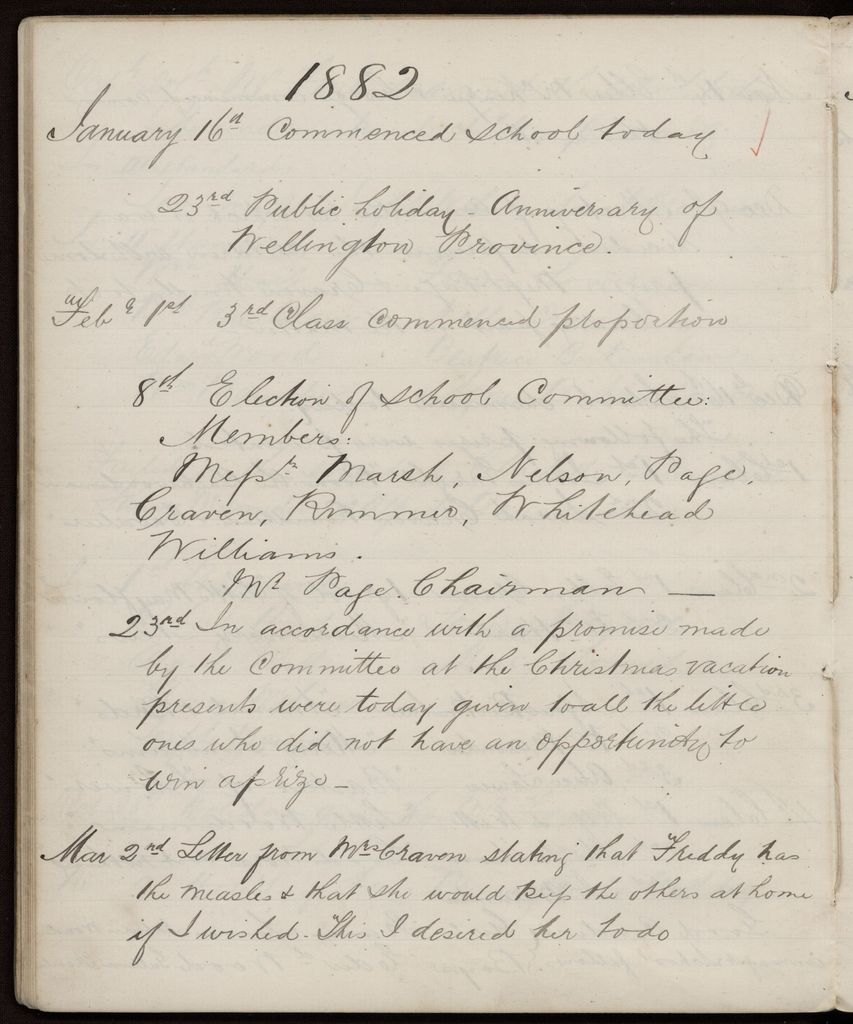 1882
January 16th Commenced school today
23rd Public holiday - Anniversary of
Wellington Province.
Feb 1st 3rd Class commenced proportion
8th Election of school Committee:
Members:
Messrs Marsh, Nelson, Page,
Craven, Rimmer, Whitehead
Williams.
Mr Page. Chairman —
23rd In accordance with a promise made
by the Committee at the Christmas vacation
presents were today given to all the little
ones who did not have an opportunity to
win a prize —
Mar 2nd Letter from Mrs Craven stating that Freddy has
the measles & that she would keep the others at home
if I wished. This I desired her to do